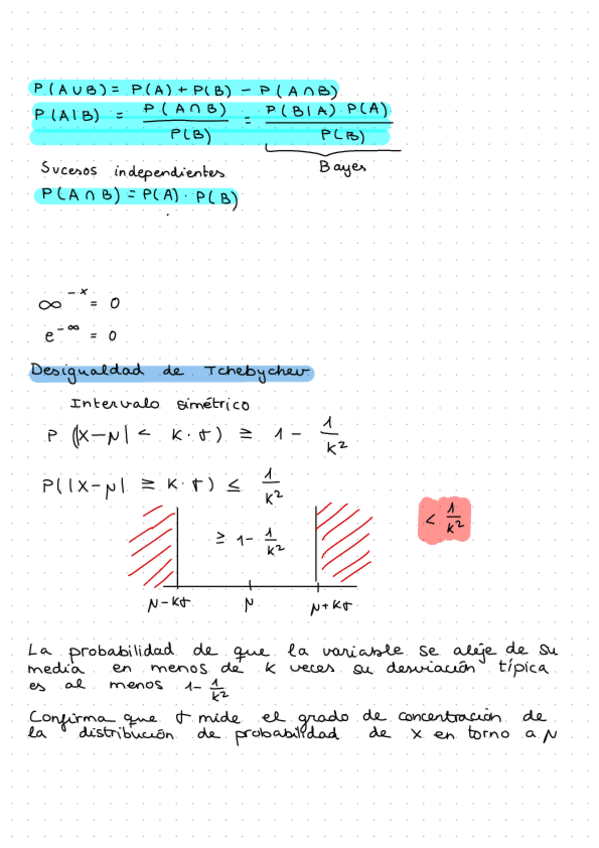 P(A∪B) = P(A) + P(B) - P(A∩B)
P(A|B) = P(A∩B) / P(B) = P(B|A) · P(A) / P(B)
Bayes
Sucesos independientes
P(A∩B) = P(A) · P(B)
∞^-x = 0
e^-∞ = 0
Desigualdad de Tchebychev
Intervalo simétrico
P (|X-μ| < k·σ) ≥ 1 - 1/k²
P(|X-μ| ≥ k·σ) ≤ 1/k²
< 1/k²
≥ 1 - 1/k²
μ-kσ μ μ+kσ
La probabilidad de que la variable se aleje de su
media en menos de k veces su desviación típica
es al menos 1 - 1/k²
Confirma que σ mide el grado de concentración de
la distribución de probabilidad de X en torno a μ